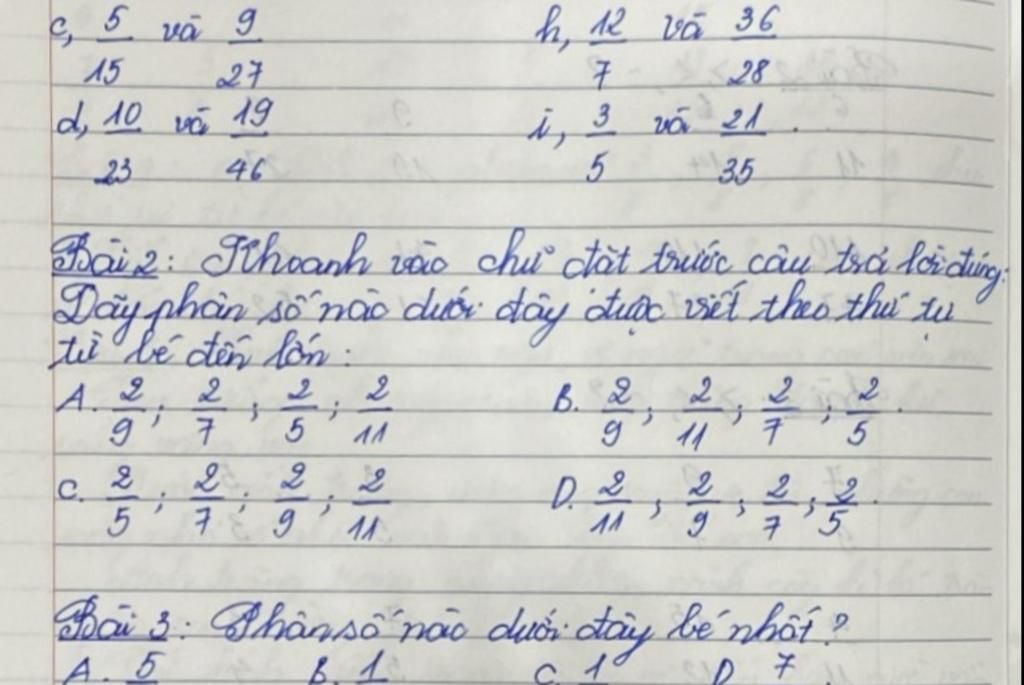 c, 5/15 và 9/27 h, 12/7 và 36/28
d, 10/23 và 19/46 i, 3/5 và 21/35.
Bài 2: Khoanh vào chữ đặt trước câu trả lời đúng:
Dãy phân số nào dưới đây được viết theo thứ tự
từ bé đến lớn:
A. 2/9; 2/7; 2/5; 2/11 B. 2/9; 2/11; 2/7; 2/5.
C. 2/5; 2/7; 2/9; 2/11 D. 2/11; 2/9; 2/7; 2/5.
Bài 3: Phân số nào dưới đây bé nhất?
A. 5 B. 1 C. 1 D. 7